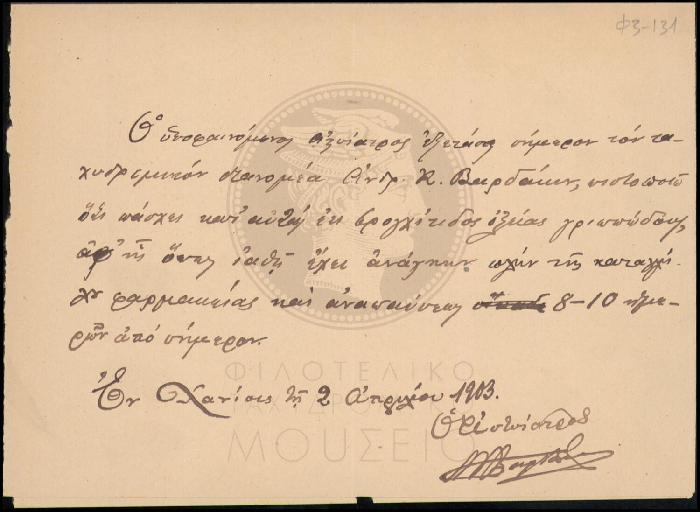 Φ3-131
Ὁ ὑποφαινόμενος ἀξίατρος ἐξετάσας σήμερον τὸν τα-
χυδρομικὸν διανομέα Ἀνδρ. Κ. Βαρδάκην, πιστοποιῶ
ὅτι πάσχει κατ' αὐτὰς ἐκ βρογχίτιδος ὀξείας γριππώδους,
ἀφ' ἧς ὅπως ἰαθῇ ἔχει ἀνάγκην πλὴν τῆς καταλλή-
λου φαρμακείας καὶ ἀναπαύσεως 8-10 ἡμε-
ρῶν ἀπὸ σήμερον.
Ἐν Χανίοις τῇ 2 Ἀπριλίου 1903.
ΦΙΛΟΤΕΛΙΚΟ
ΜΟΥΣΕΙΟ